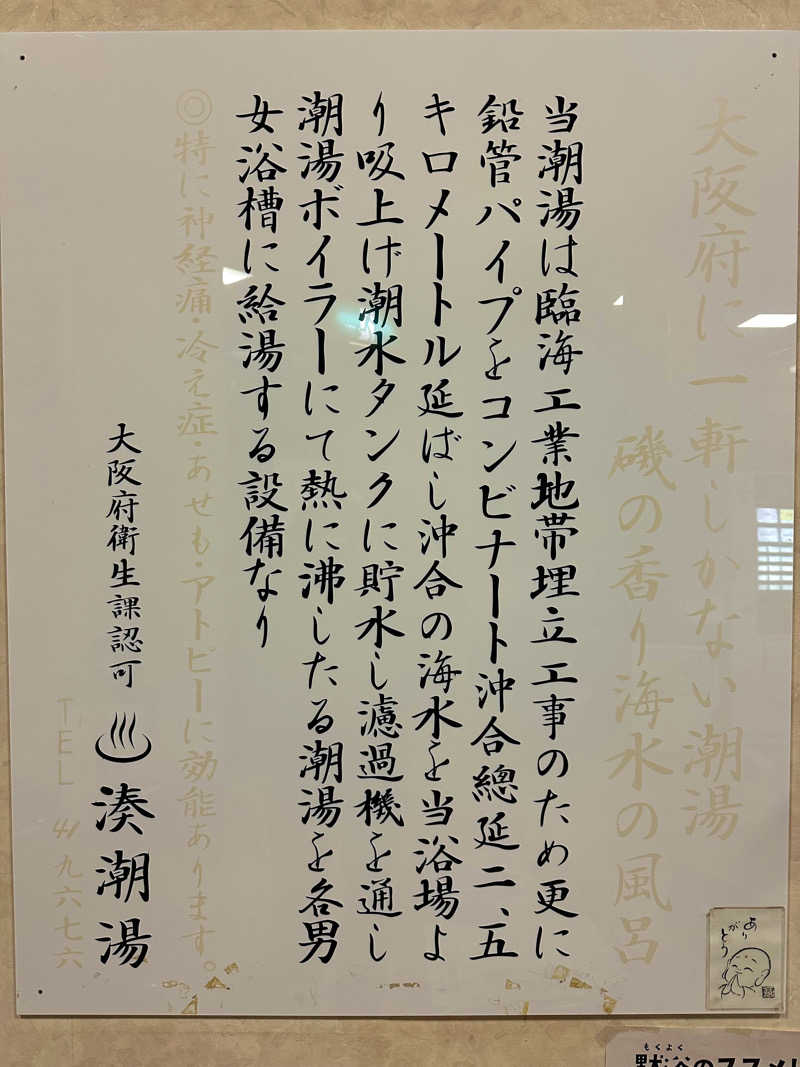 大阪府に一軒しかない潮湯
磯の香り海水の風呂
当潮湯は臨海工業地帯埋立工事のため更に
鉛管パイプをコンビナート沖合總延二、五
キロメートル延ばし沖合の海水を当浴場よ
り吸上げ潮水タンクに貯水し濾過機を通し
潮湯ボイラーにて熱に沸したる潮湯を各男
女浴槽に給湯する設備なり
◎特に神経痛・冷え症・あせも・アトピーに効能あります。
大阪府衛生課認可 ♨ 湊潮湯
TEL 41 九六七六
ありがとう
もくよく
黙浴のススメ!